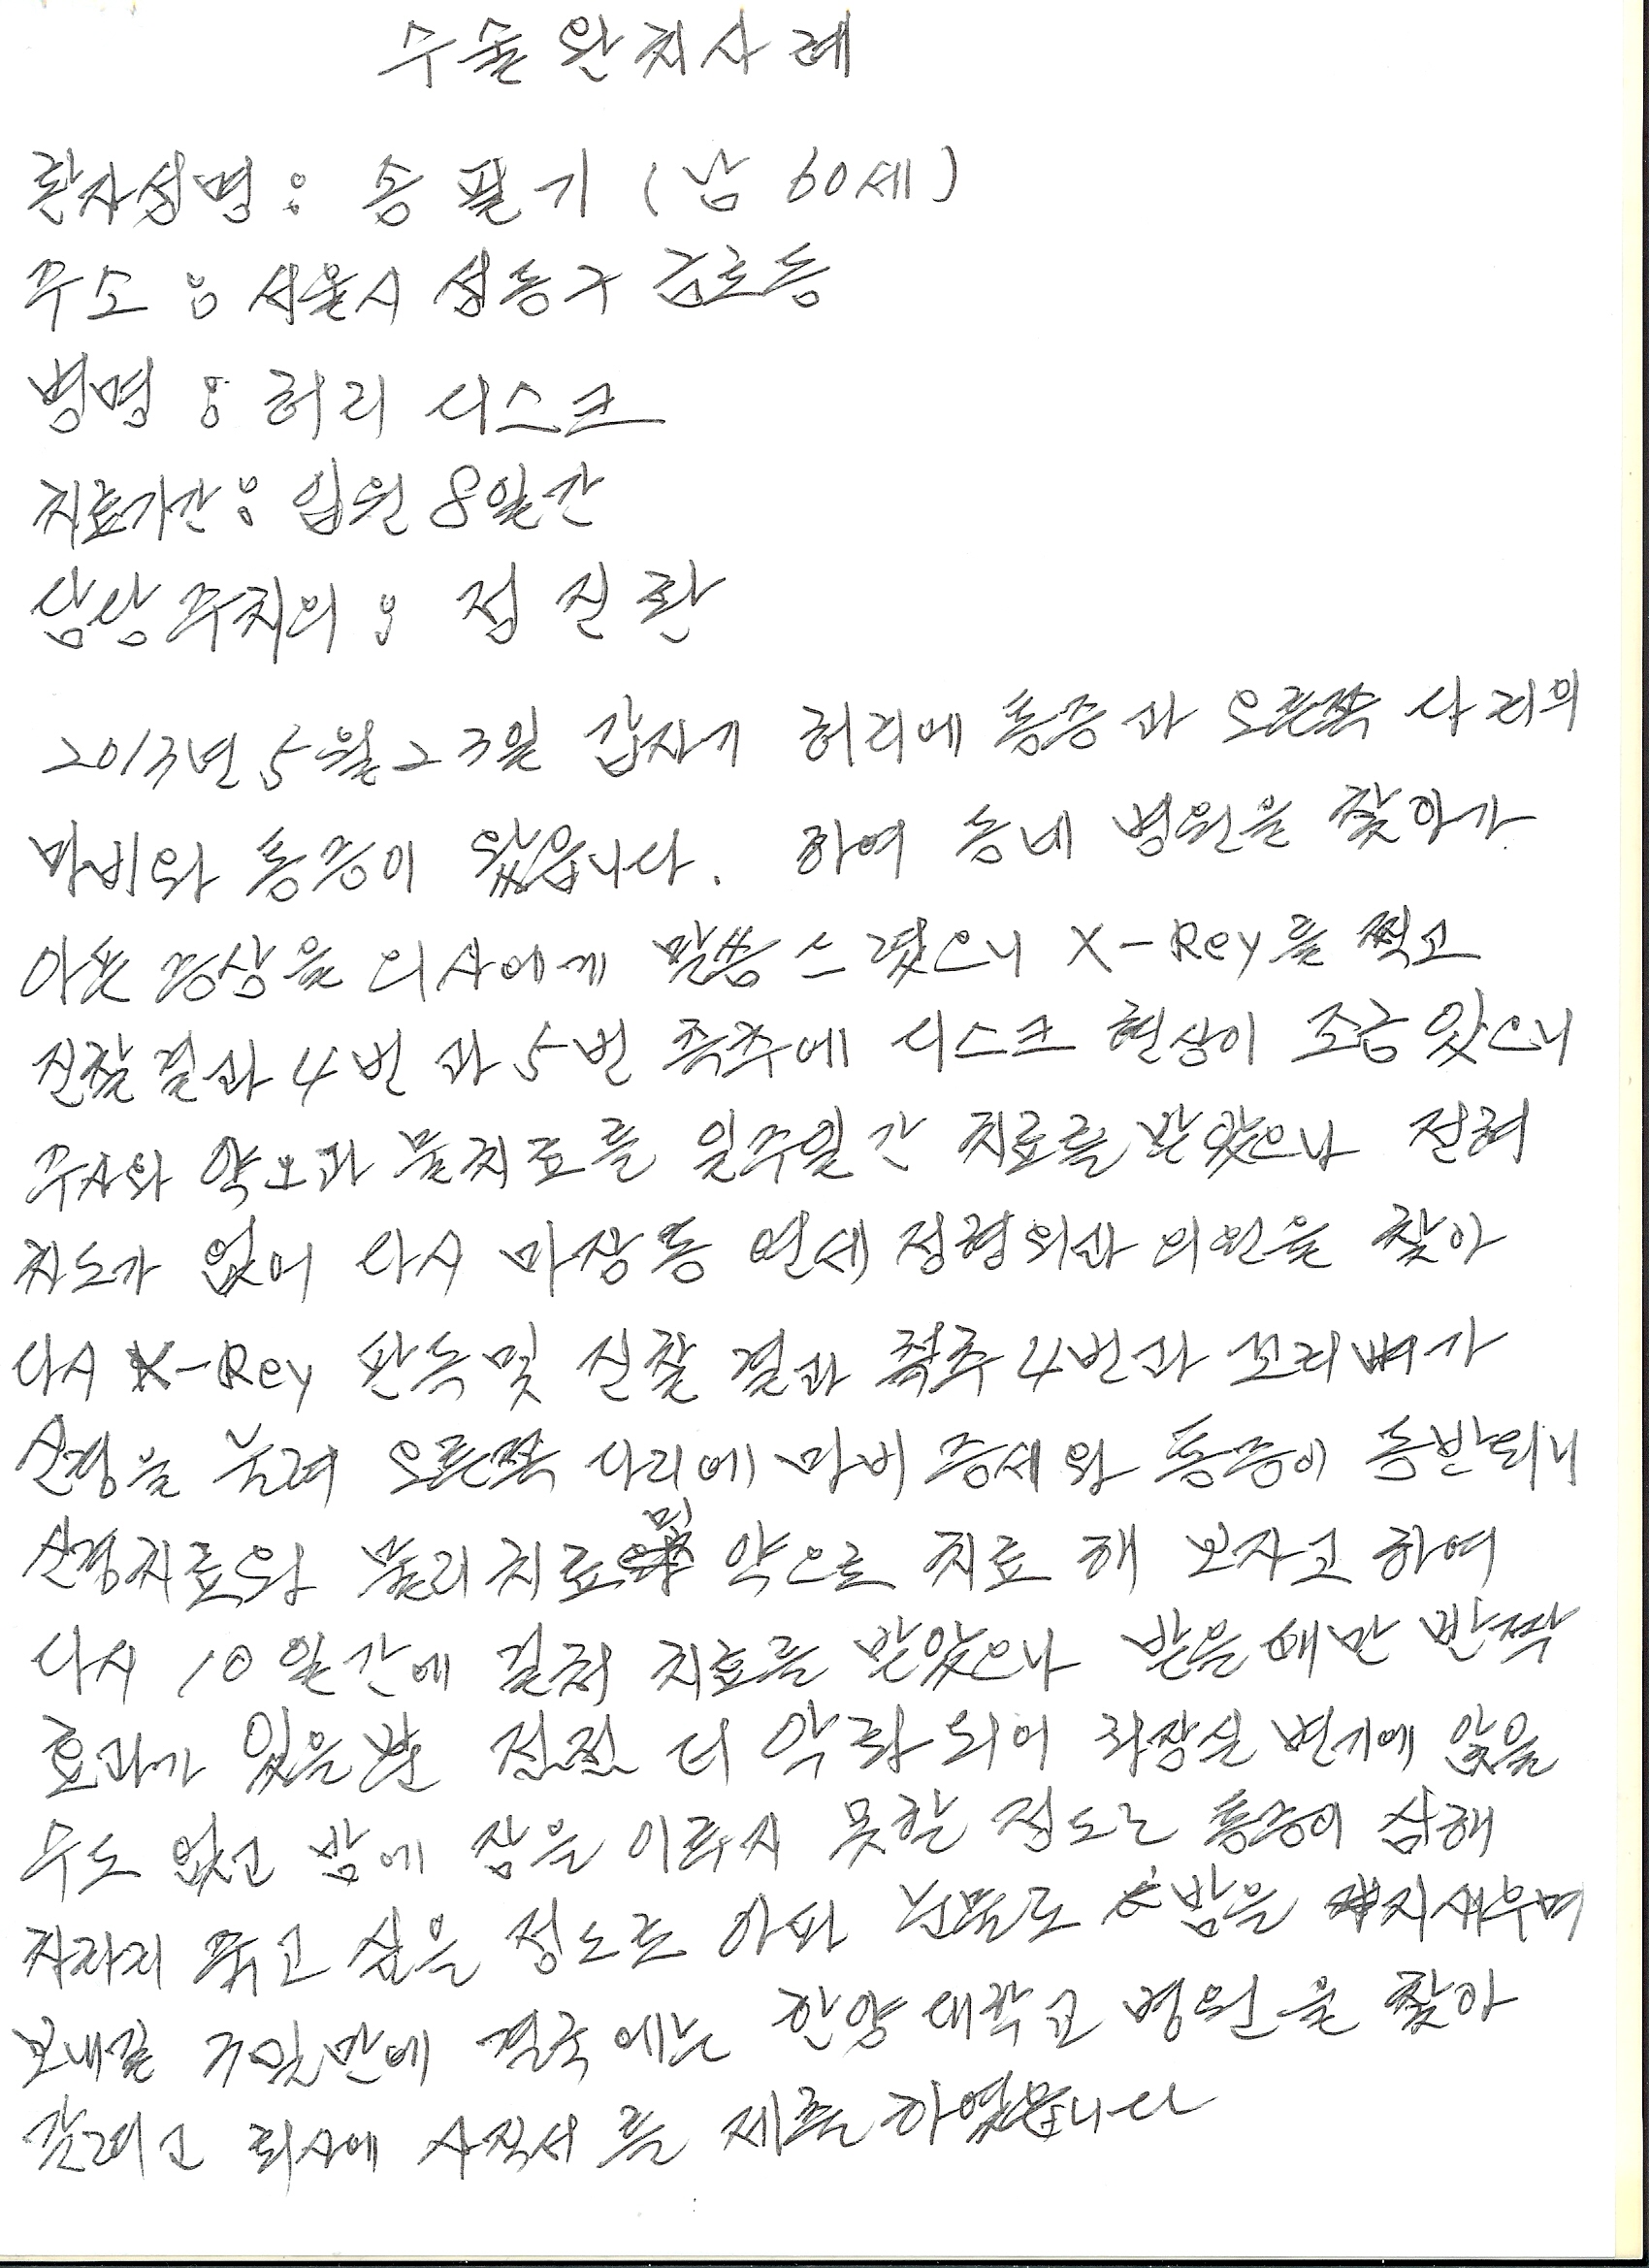 수술 완치사례
환자성명 : 송필기 (남 60세)
주소 : 서울시 성동구 금호동
병명 : 허리 디스크
치료기간 : 입원 8일간
담당주치의 : 정진환
2013년 5월 23일 갑자기 허리에 통증과 오른쪽 다리의
마비와 통증이 왔읍니다. 하여 동네 병원을 찾아가
아픈 증상을 의사에게 말씀 드렸으니 X-Rey를 찍고
진찰결과 4번과 5번 척추에 디스크 현상이 조금 있으니
주사와 약으과 물치료를 일주일간 치료를 받았으나 전혀
치도가 없어 다시 마장동 연세 정형외과 의원을 찾아
다시 X-Rey 판독및 진찰 결과 척추 4번과 꼬리뼈가
신경을 눌려 오른쪽 다리에 마비 증세와 통증이 동반되니
신경치료와 물리치료 및 약으로 치료 해 보자고 하여
다시 10일간에 걸쳐 치료를 받았으나 받을때만 반짝
효과가 있을뿐 점점 더 악화되어 화장실 변기에 앉을
수도 없고 밤에 잠을 이루지 못할 정도는 통증이 심해
차라리 죽고 싶을 정도로 아파 눈물로 밤을 지새우며
보내길 구일만에 결국에는 한양대학교 병원을 찾아
갈려고 회사에 사직서를 제출하였읍니다